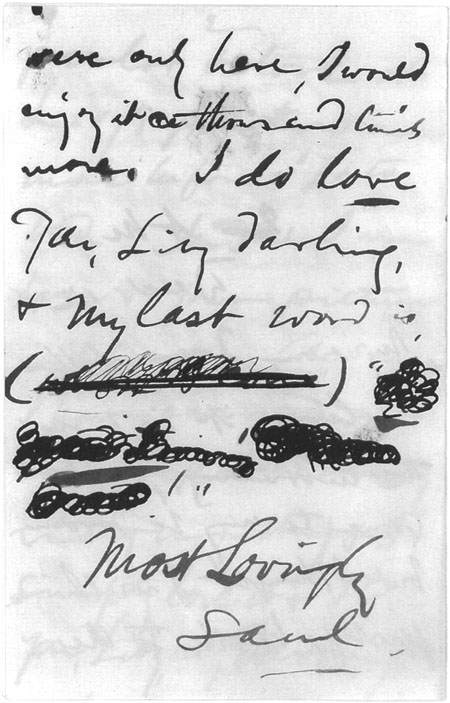 were only here, I would
enjoy it a thousand times
more. I do love
You, Livy darling,
& my last word is
( ) "
' "
Most Lovingly
Saml.